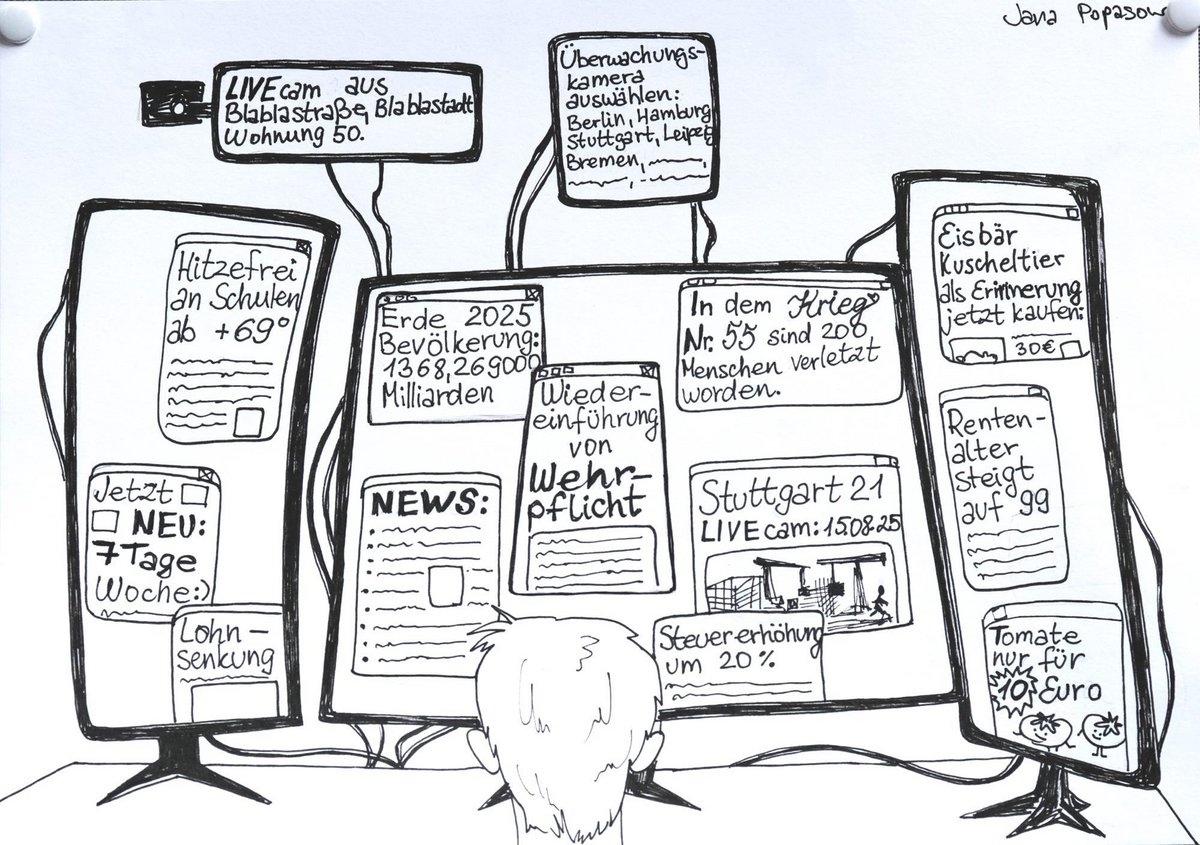 Jana Popasow
LIVEcam aus
Blablastraße, Blablastadt
Wohnung 50.
Überwachungs-
kamera
auswählen:
Berlin, Hamburg
Stuttgart, Leipzig
Bremen,
Hitzefrei
an Schulen
ab +69°
Jetzt
NEU:
7 Tage
Woche:)
Lohn-
senkung
Erde 2025
Bevölkerung:
1368,269000
Milliarden
NEWS:
Wieder-
einführung
von
Wehr-
pflicht
In dem Krieg
Nr. 55 sind 200
Menschen verletzt
worden.
Stuttgart 21
LIVEcam: 15.08.25
Steuererhöhung
um 20%
Eisbär
Kuscheltier
als Erinnerung
jetzt kaufen:
30€
Renten-
alter
steigt
auf 99
Tomate
nur für
10 Euro